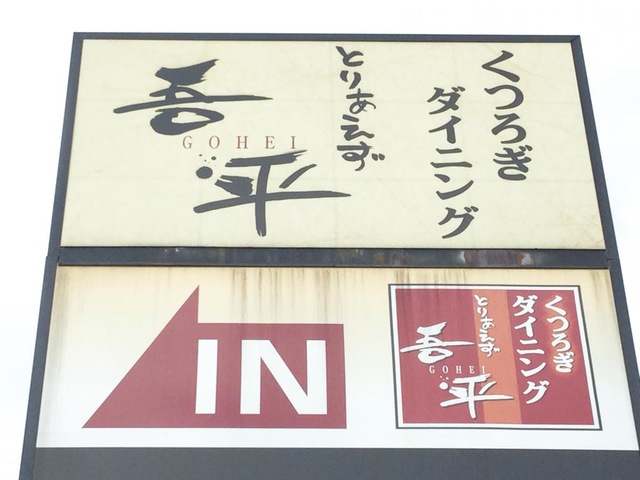 くつろぎ
ダイニング
とりあえず
吾平
GOHEI
IN
くつろぎ
ダイニング
とりあえず
吾平
GOHEI